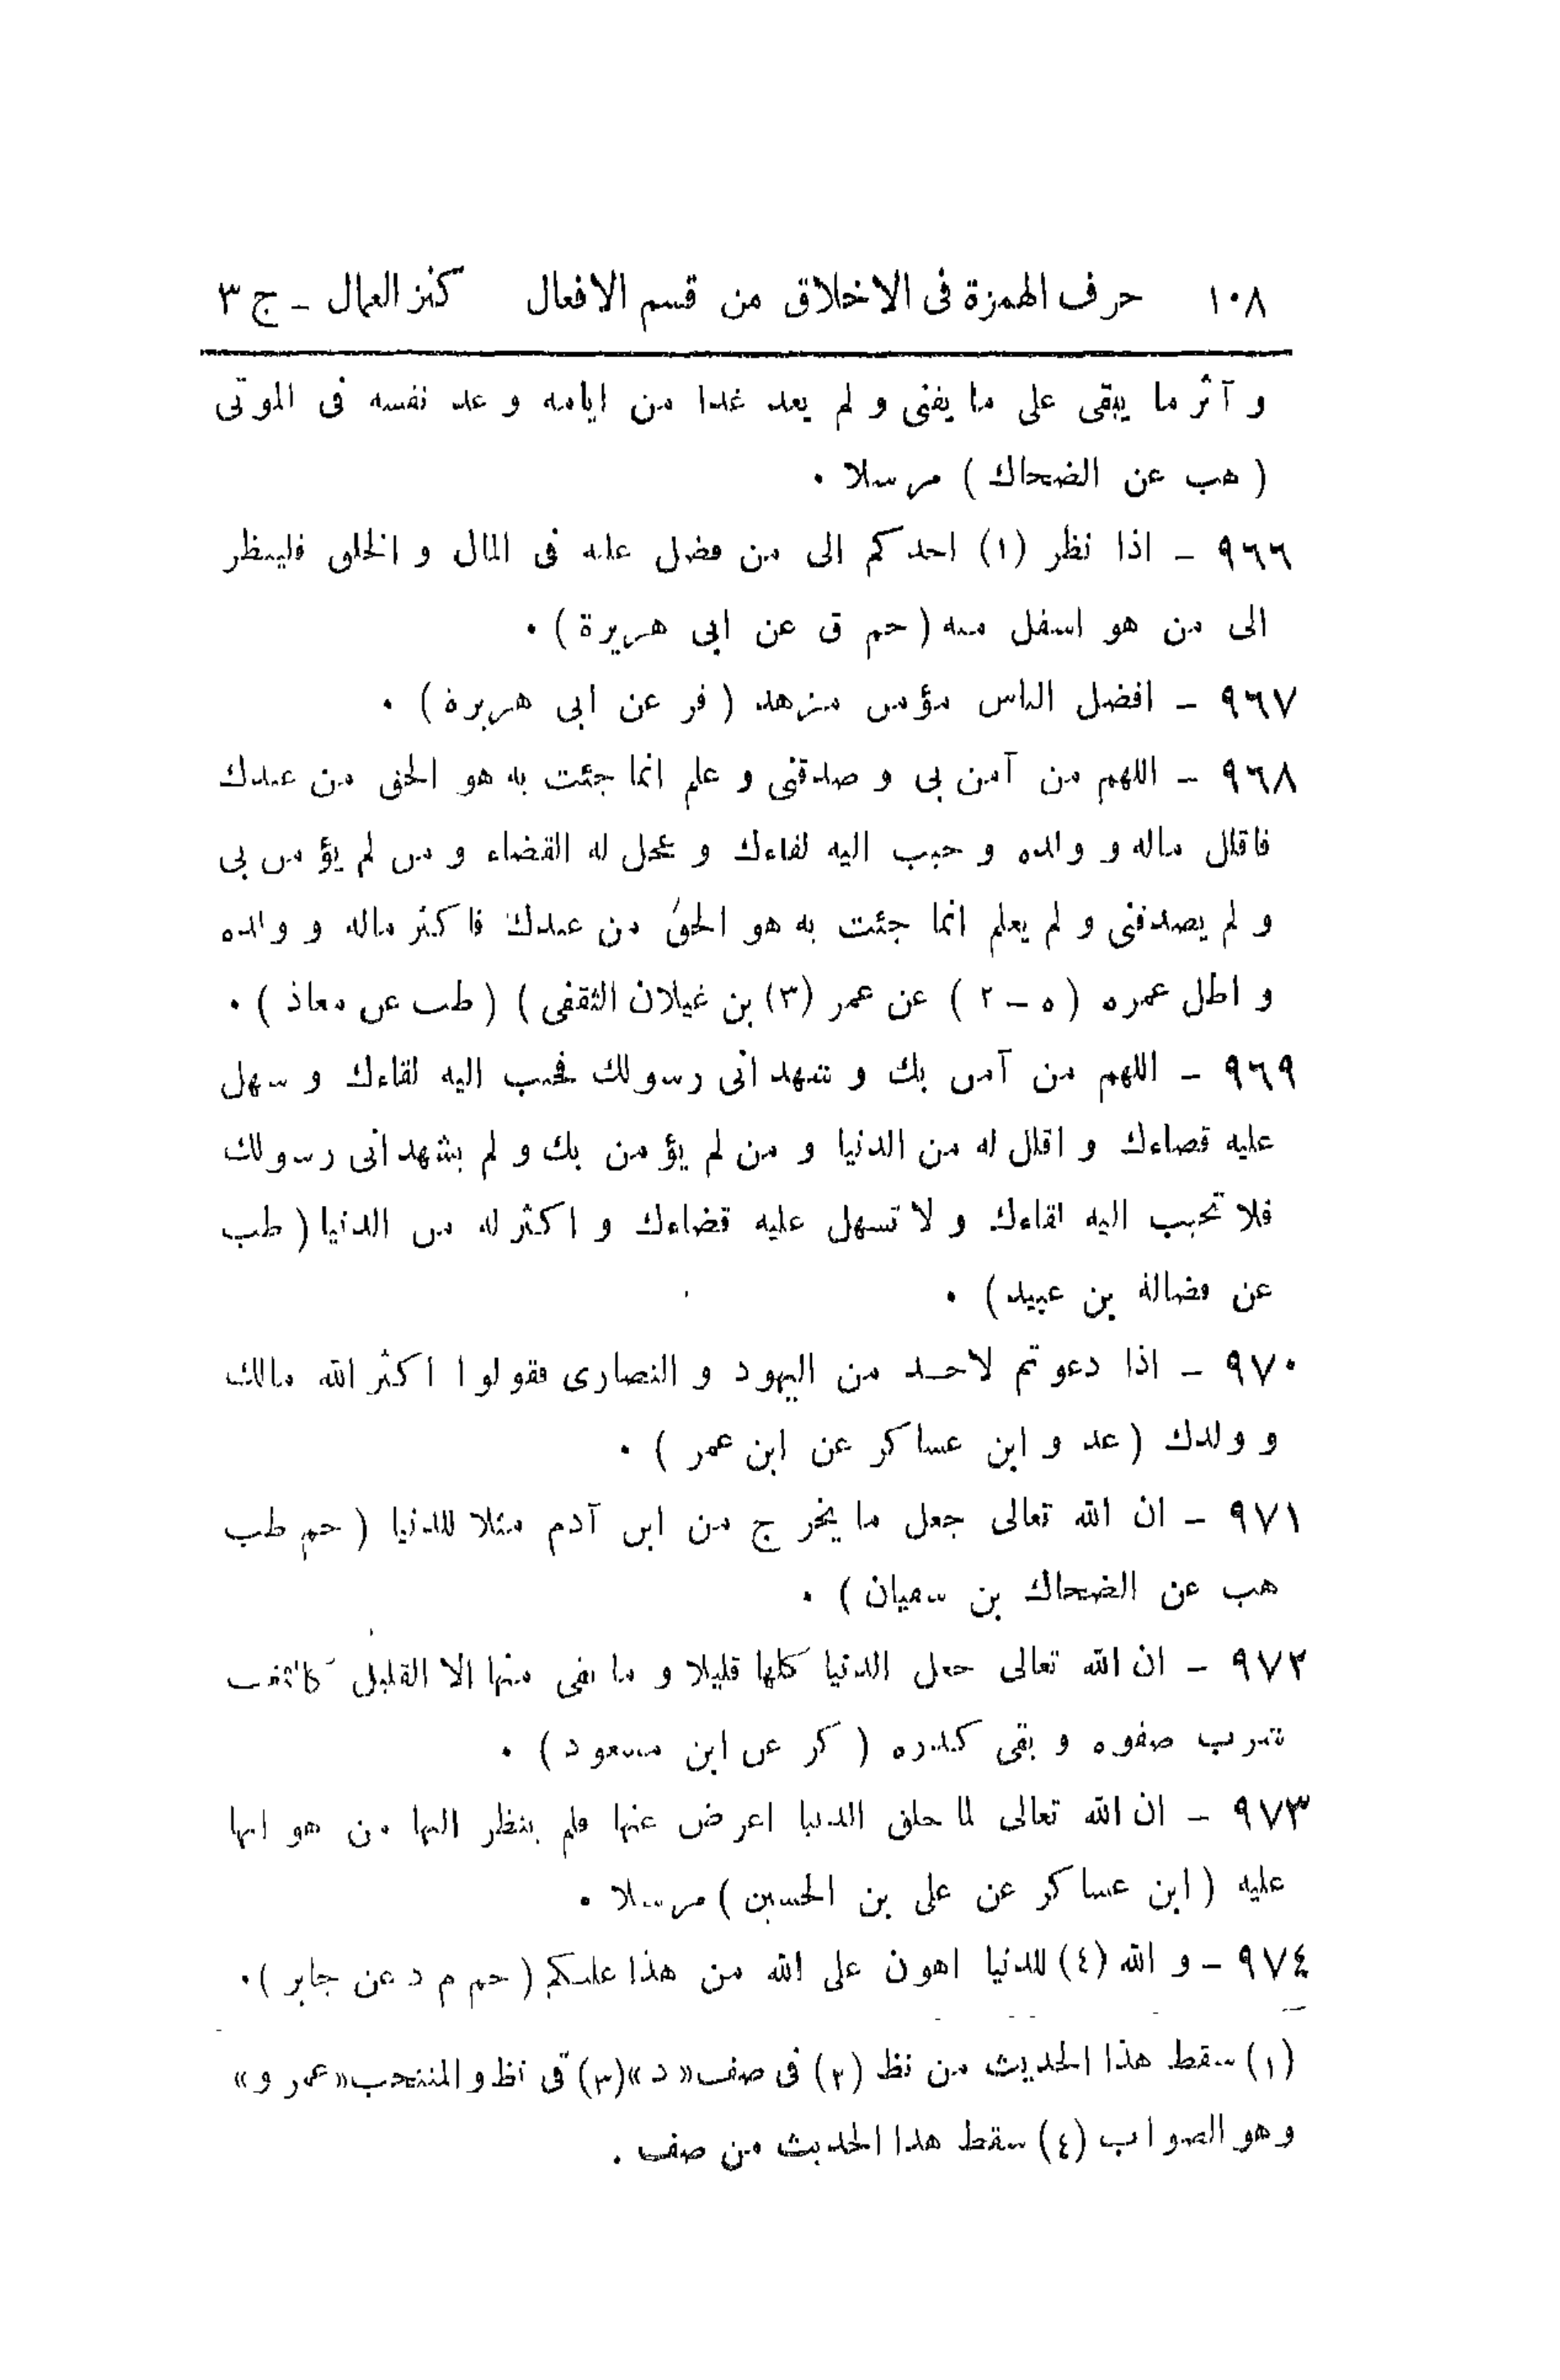 ١٠٨ حرف الهمزة فى الاخلاق من قسم الافعال كنز العمال ــ ج ٣
و آثر ما يبقى على ما يفنى و لم يعد غدا من ايامه و عد نفسه فى الموتى
( هب عن الضحاك ) مرسلا ٠
٩٦٦ ــ اذا نظر (١) احدكم الى من فضل عليه فى المال و الخلق فلينظر
الى من هو اسفل منه ( حم ق عن ابى هريرة ) ٠
٩٦٧ ــ افضل الناس مؤمن مزهد ( فر عن ابى هريرة ) ٠
٩٦٨ ــ اللهم من آمن بى و صدقنى و علم انما جئت به هو الحق من عندك
فاقلل ماله و ولده و حبب اليه لقاءك و عجل له القضاء و من لم يؤمن بى
و لم يصدقنى و لم يعلم انما جئت به هو الحق من عندك فاكثر ماله و ولده
و اطل عمره ( ه ــ ٢ ) عن عمر (٣) بن غيلان الثقفى ) ( طب عن معاذ ) ٠
٩٦٩ ــ اللهم من آمن بك و شهد انى رسولك فحبب اليه لقاءك و سهل
عليه قضاءك و اقلل له من الدنيا و من لم يؤمن بك و لم يشهد انى رسولك
فلا تحبب اليه لقاءك و لا تسهل عليه قضاءك و اكثر له من الدنيا ( طب
عن فضالة بن عبيد ) ٠
٩٧٠ ــ اذا دعوتم لاحــد من اليهود و النصارى فقولوا اكثر الله مالك
و ولدك ( عد و ابن عساكر عن ابن عمر ) ٠
٩٧١ ــ ان الله تعالى جعل ما يخرج من ابن آدم مثلا للدنيا ( حم طب
هب عن الضحاك بن سفيان ) ٠
٩٧٢ ــ ان الله تعالى جعل الدنيا كلها قليلا و ما بقى منها الا القليل كالثغب
شرب صفوه و بقى كدره ( كر عن ابن مسعود ) ٠
٩٧٣ ــ ان الله تعالى لما خلق الدنيا اعرض عنها فلم ينظر اليها من هوانها
عليه ( ابن عساكر عن على بن الحسين ) مرسلا ٠
٩٧٤ ــ و الله (٤) للدنيا اهون على الله من هذا عليكم ( حم م د عن جابر ) ٠
(١) سقط هذا الحديث من نظ (٢) فى صف « د » (٣) فى نظ و المنتخب « عمرو »
وهو الصواب (٤) سقط هذا الحديث من صف .